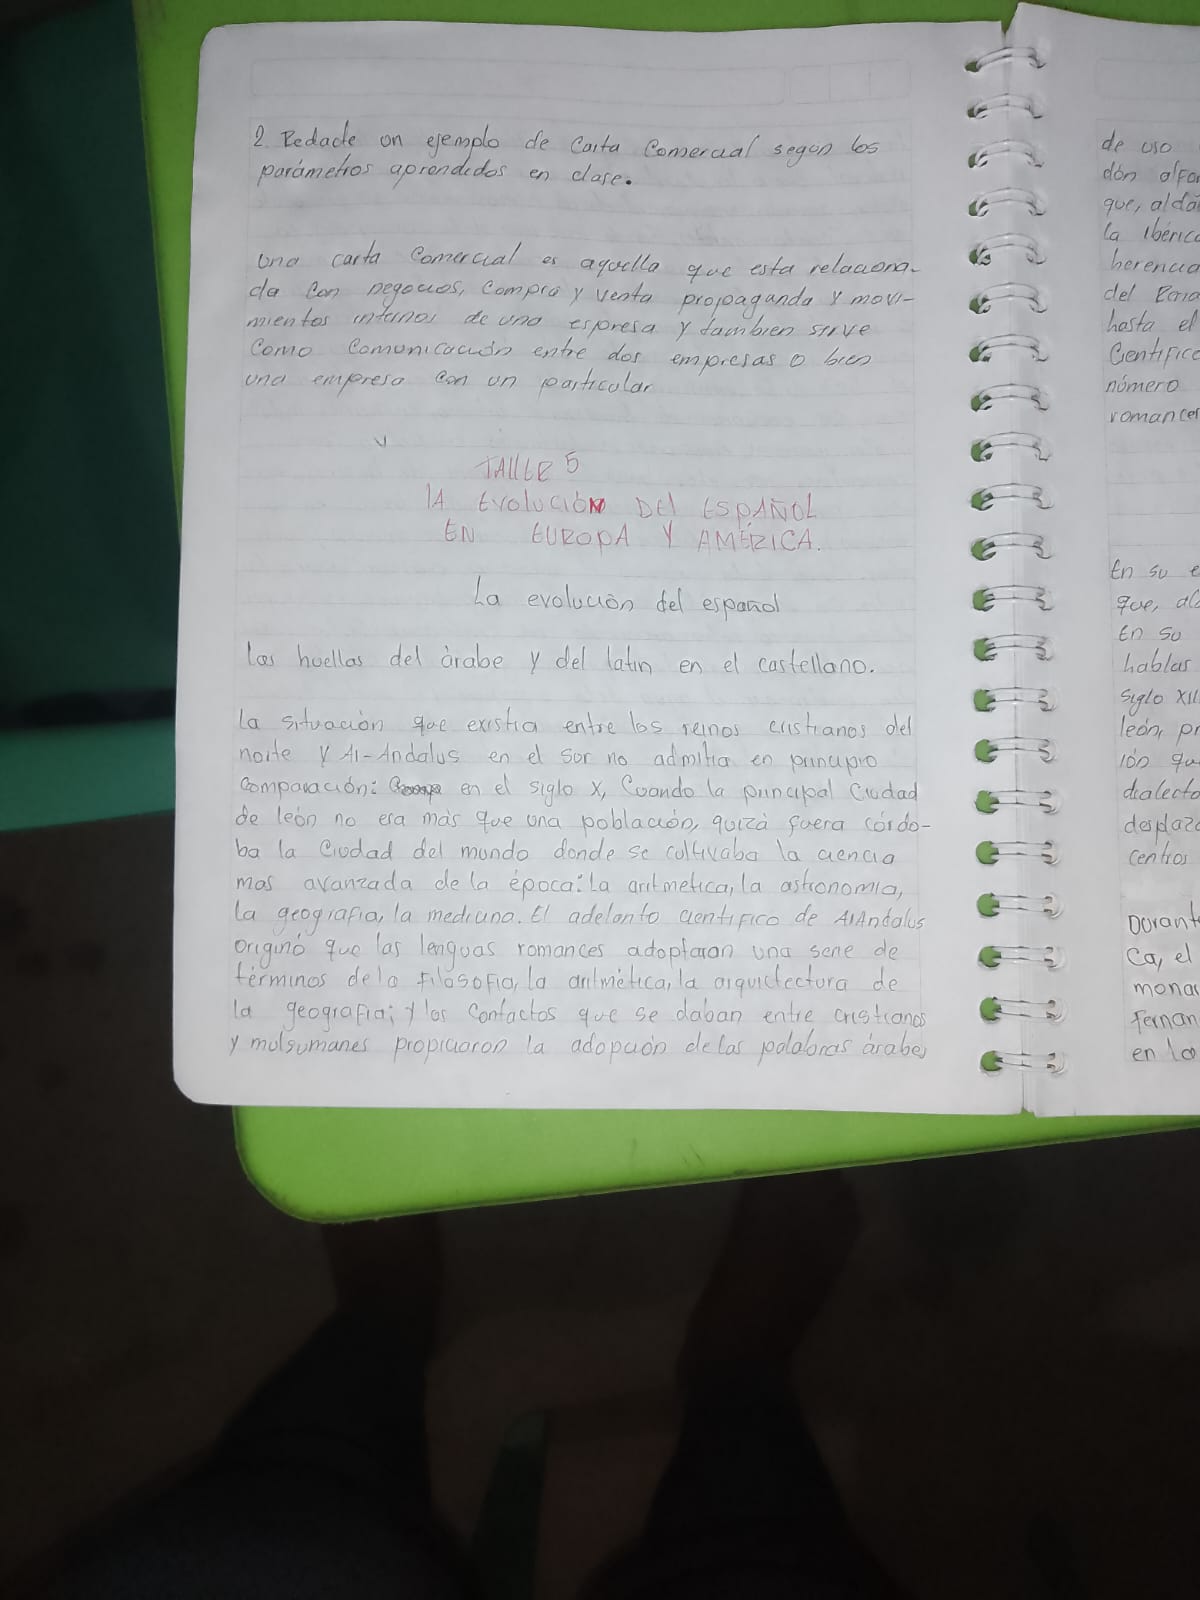 2. Redacte un ejemplo de Carta Comercial segun los
parámetros aprendidos en clase.
una carta Comercial es aquella que esta relaciona-
da Con negocios, Compra y venta propaganda y movi-
mientos internos de una espresa y tambien sirve
Como Comunicación entre dos empresas o bien
una empresa Con un particular
TALLER 5
LA EVOLUCIÓN DEL ESPAÑOL
EN EUROPA Y AMÉRICA.
La evolución del español
Las huellas del árabe y del latin en el castellano.
la situación que existia entre los reinos cristianos del
norte y Al-Andalus en el sur no admitia en principio
Comparación: en el siglo X, Cuando la principal Ciudad
de león no era más que una población, quizá fuera córdo-
ba la Ciudad del mundo donde se cultivaba la ciencia
mas avanzada de la época: la aritmetica, la astronomia,
la geografia, la medicina. El adelanto cientifico de AlAndalus
originó que las lenguas romances adoptaran una serie de
términos de la filosofia, la aritmética, la arquictectura de
la geografia; y los Contactos que se daban entre cristianos
y mulsumanes propiciaron la adopción de las palabras árabes
de uso
dón alfon
que, al
la Ibérica
herencia
del
hasta el
Cientifico
número
romance
En su e
que, al
En su
hablas
siglo XII
león, pr
ión qu
dialecto
desplaz
centros
Durant
Ca, el
monar
fernan
en la